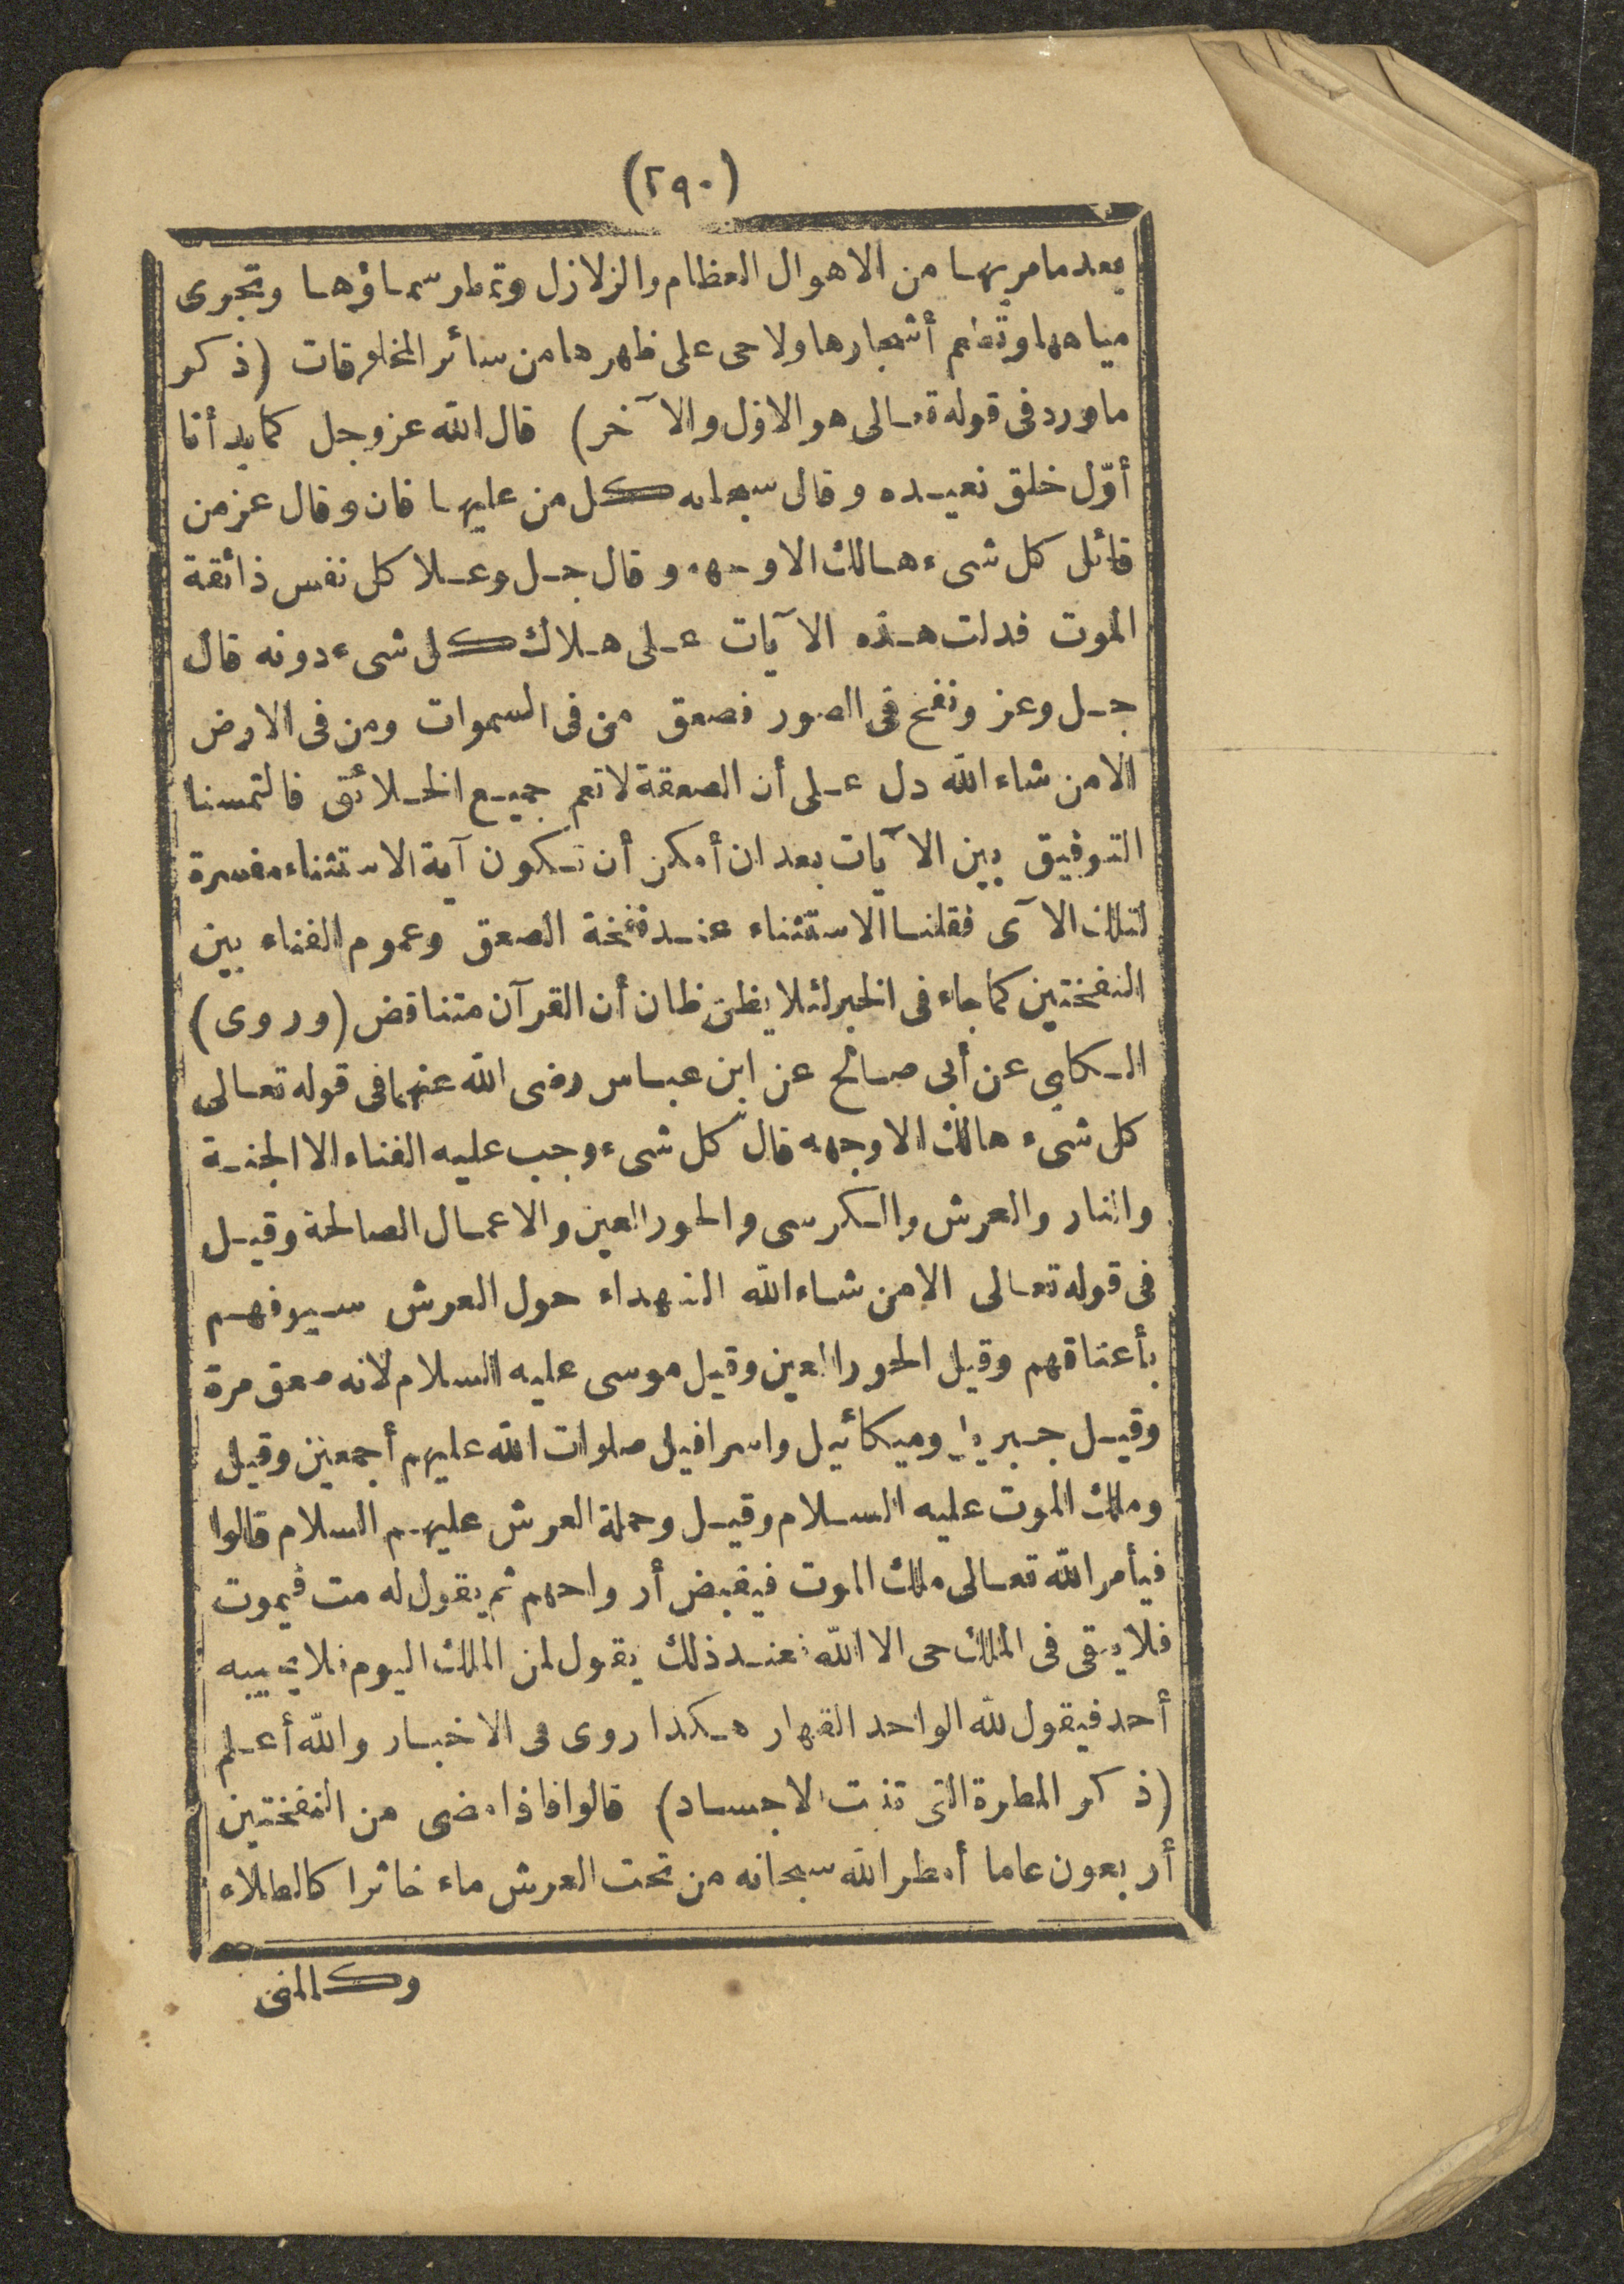 (٢٩٠)
بعد ما مر بها من الاهوال العظام والزلازل وتمطر سماؤها وتجرى
مياهها وتطعم أشجارها ولا حى على ظهرها من سائر المخلوقات (ذكر
ما ورد فى قوله تعالى هو الاوّل والآخر) قال الله عز وجل كما بدأنا
أوّل خلق نعيده وقال سبحانه كل من عليها فان وقال عز من
قائل كل شىء هالك الا وجهه وقال جل وعلا كل نفس ذائقة
الموت فدلت هذه الآيات على هلاك كل شىء دونه قال
جل وعز ونفخ فى الصور فصعق من فى السموات ومن فى الارض
الا من شاء الله دل على أن الصعقة لا تعم جميع الخلائق فالتمسنا
التوفيق بين الآيات بعد ان أمكن أن تكون آية الاستثناء مفسرة
لتلك الآى فقلنا الاستثناء عند نفخة الصعق وعموم الفناء بين
النفختين كما جاء فى الخبر لئلا يظن ظان أن القرآن متناقض (وروى)
الكلبى عن أبى صالح عن ابن عباس رضى الله عنهما فى قوله تعالى
كل شىء هالك الا وجهه قال كل شىء وجب عليه الفناء الا الجنة
والنار والعرش والكرسى والحور العين والاعمال الصالحة وقيل
فى قوله تعالى الا من شاء الله الشهداء حول العرش سيوفهم
بأعناقهم وقيل الحور العين وقيل موسى عليه السلام لانه صعق مرة
وقيل جبريل وميكائيل واسرافيل صلوات الله عليهم أجمعين وقيل
وملك الموت عليه السلام وقيل وحملة العرش عليهم السلام قالوا
فيأمر الله تعالى ملك الموت فيقبض أرواحهم ثم يقول له مت فيموت
فلا يبقى فى الملك حى الا الله فعند ذلك يقول لمن الملك اليوم فلا يجيبه
أحد فيقول لله الواحد القهار هكذا روى فى الاخبار والله أعلم
(ذكر المطرة التى تنبت الاجساد) قالوا فاذا مضى من النفختين
أربعون عاما أمطر الله سبحانه من تحت العرش ماء خاثرا كالطلاء
وكالمنى